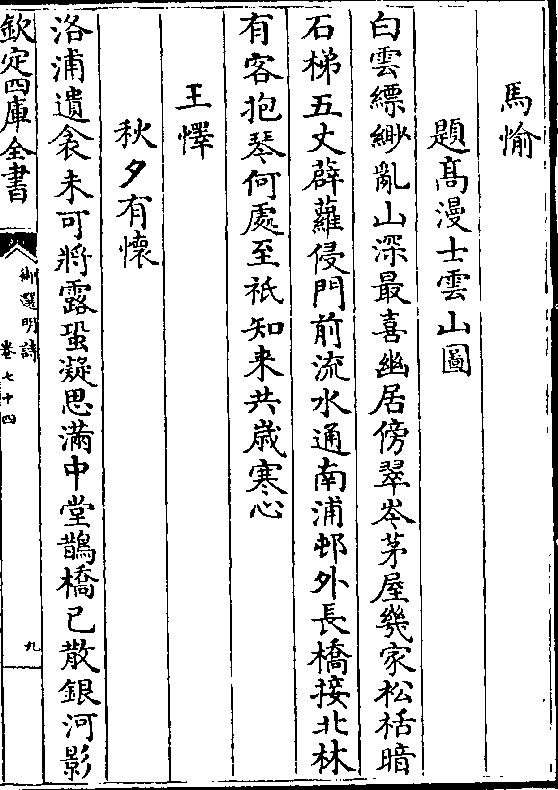 馬愉
題髙漫士雲山圖
白雲縹緲亂山深最喜幽居傍翠岑茅屋幾家松栝暗
石梯五丈薜蘿侵門前流水通南浦邨外長橋接北林
有客抱琴何處至祇知来共歳寒心
王懌
秋夕有懷
洛浦遺衾未可將露蛩凝思滿中堂鵲橋已散銀河影
欽定四庫全書
御選明詩
卷七十四
九